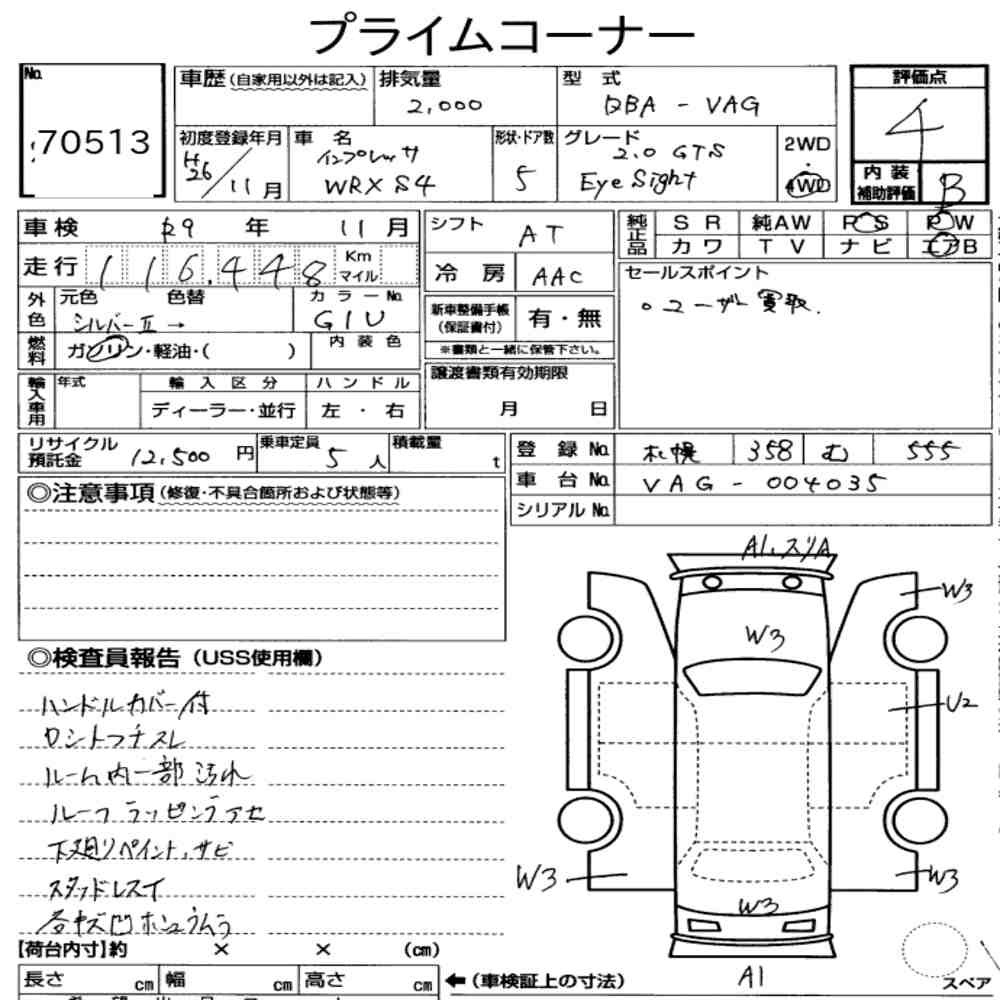 プライムコーナー
No.
70513
車歴 (自家用以外は記入)
排気量
2,000
型 式
DBA - VAG
評価点
4
初度登録年月
H26/11月
車 名
インプレッサ
WRX S4
形状・ドア数
5
グレード
2.0 GTS
EyeSight
2WD
・
4WD
内 装
補助評価
B
車検 R9 年 11 月
走行 116,448 Km マイル
外色
元色 色替
シルバーII →
カラーNo.
G1U
燃料
ガソリン・軽油・( )
内 装 色
輸入車用
年式
輸 入 区 分
ディーラー・並行
ハ ン ド ル
左 ・ 右
シフト
AT
冷 房
AAC
新車整備手帳
(保証書付)
有・無
※書類と一緒に保管下さい。
譲渡書類有効期限
月 日
純正品
S R 純AW P S P W
カ ワ T V ナ ビ エアB
セールスポイント
○ユーザー買取.
リサイクル
預託金
12,500 円
乗車定員
5 人
積載量
t
登 録 No. 札幌 358 む 555
車 台 No. VAG - 004035
シリアル No.
◎注意事項 (修復・不具合箇所および状態等)
◎検査員報告 (USS使用欄)
ハンドルカバー付
ルーム内一部汚れ
ルーフラッピングアセ
下廻りペイント、サビ
スタッドレスイ
A1,スリA
W3
W3
U2
W3
W3
W3
A1
スペア
【荷台内寸】約 × × (cm)
長さ cm 幅 cm 高さ cm
←(車検証上の寸法)